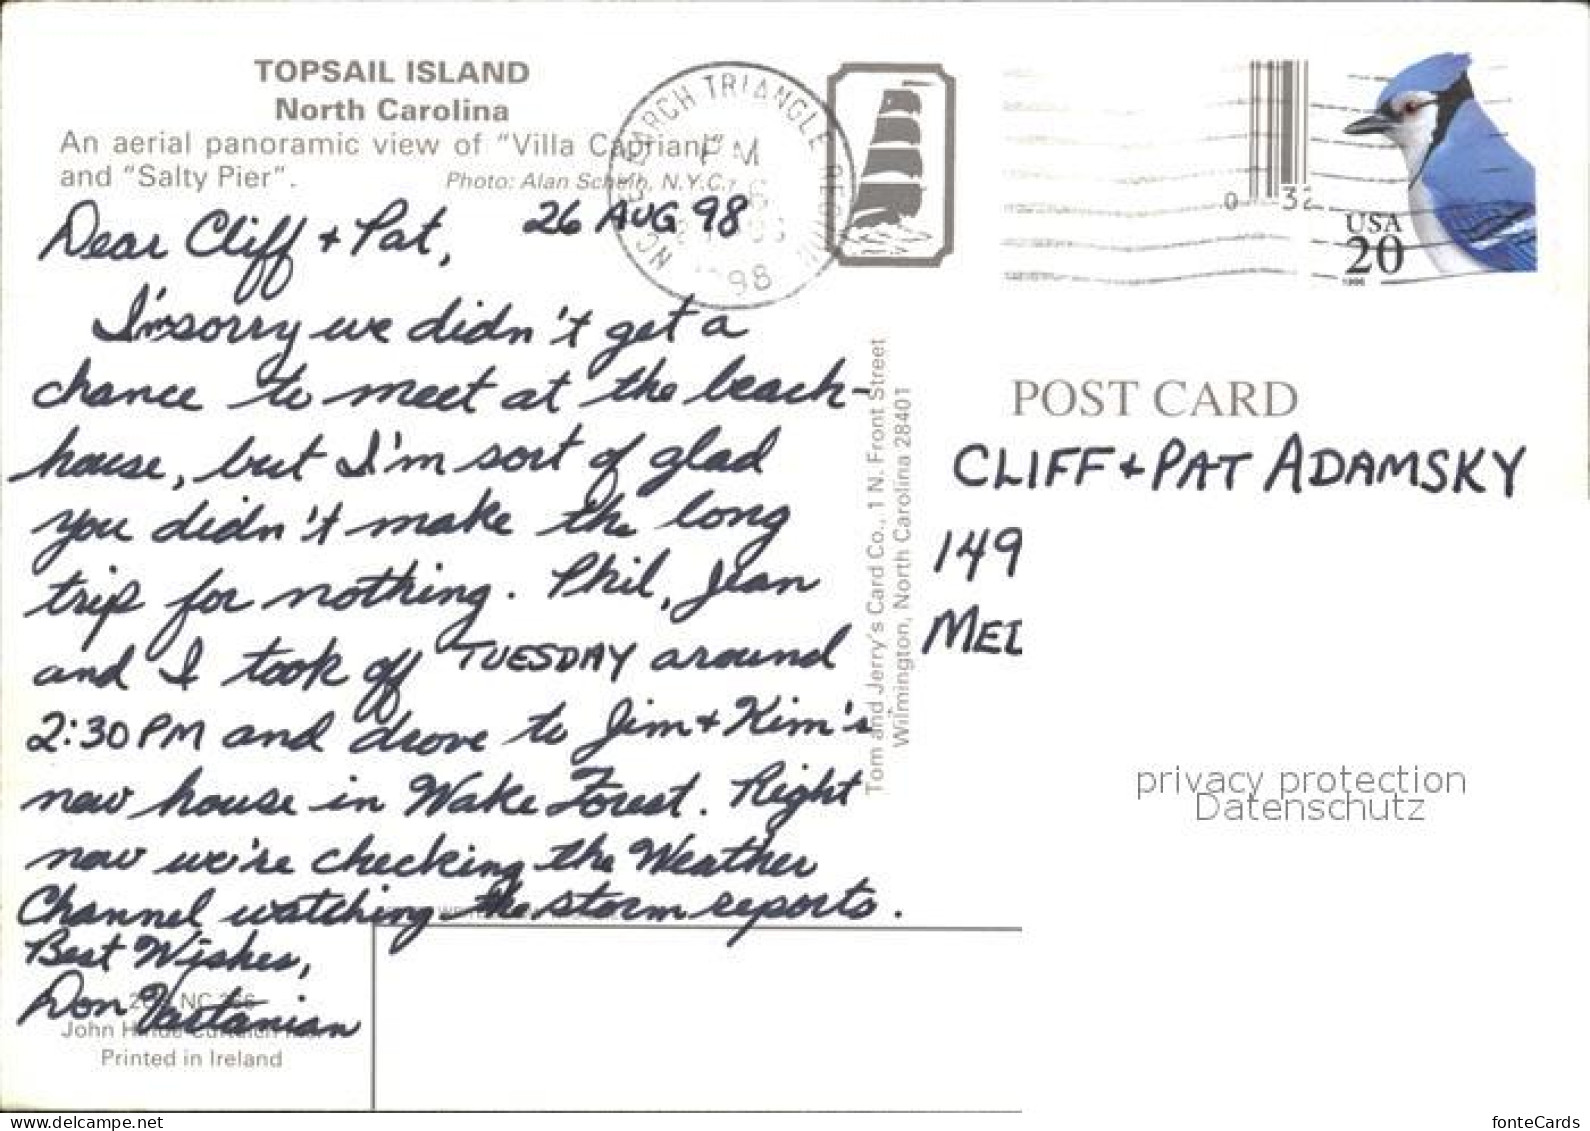 TOPSAIL ISLAND
North Carolina
An aerial panoramic view of "Villa Capriani"
and "Salty Pier".
Photo: Alan Schein, N.Y.C.
NC RESEARCH TRIANGLE REGION
PM
26
AUG
1998
0 32
USA
20
1996
26 AUG 98
Dear Cliff + Pat,
I'm sorry we didn't get a
chance to meet at the beach-
house, but I'm sort of glad
you didn't make the long
trip for nothing. Phil, Jean
and I took off TUESDAY around
2:30 PM and drove to Jim + Kim's
new house in Wake Forest. Right
now we're checking the Weather
Channel watching the storm reports.
Best Wishes,
Don Vartanian
Tom and Jerry's Card Co., 1 N. Front Street
Wilmington, North Carolina 28401
POST CARD
CLIFF + PAT ADAMSKY
149
MEL
privacy protection
Datenschutz
NC
John Hinde Curteich Inc.
Printed in Ireland
delcampe.net
fonteCards